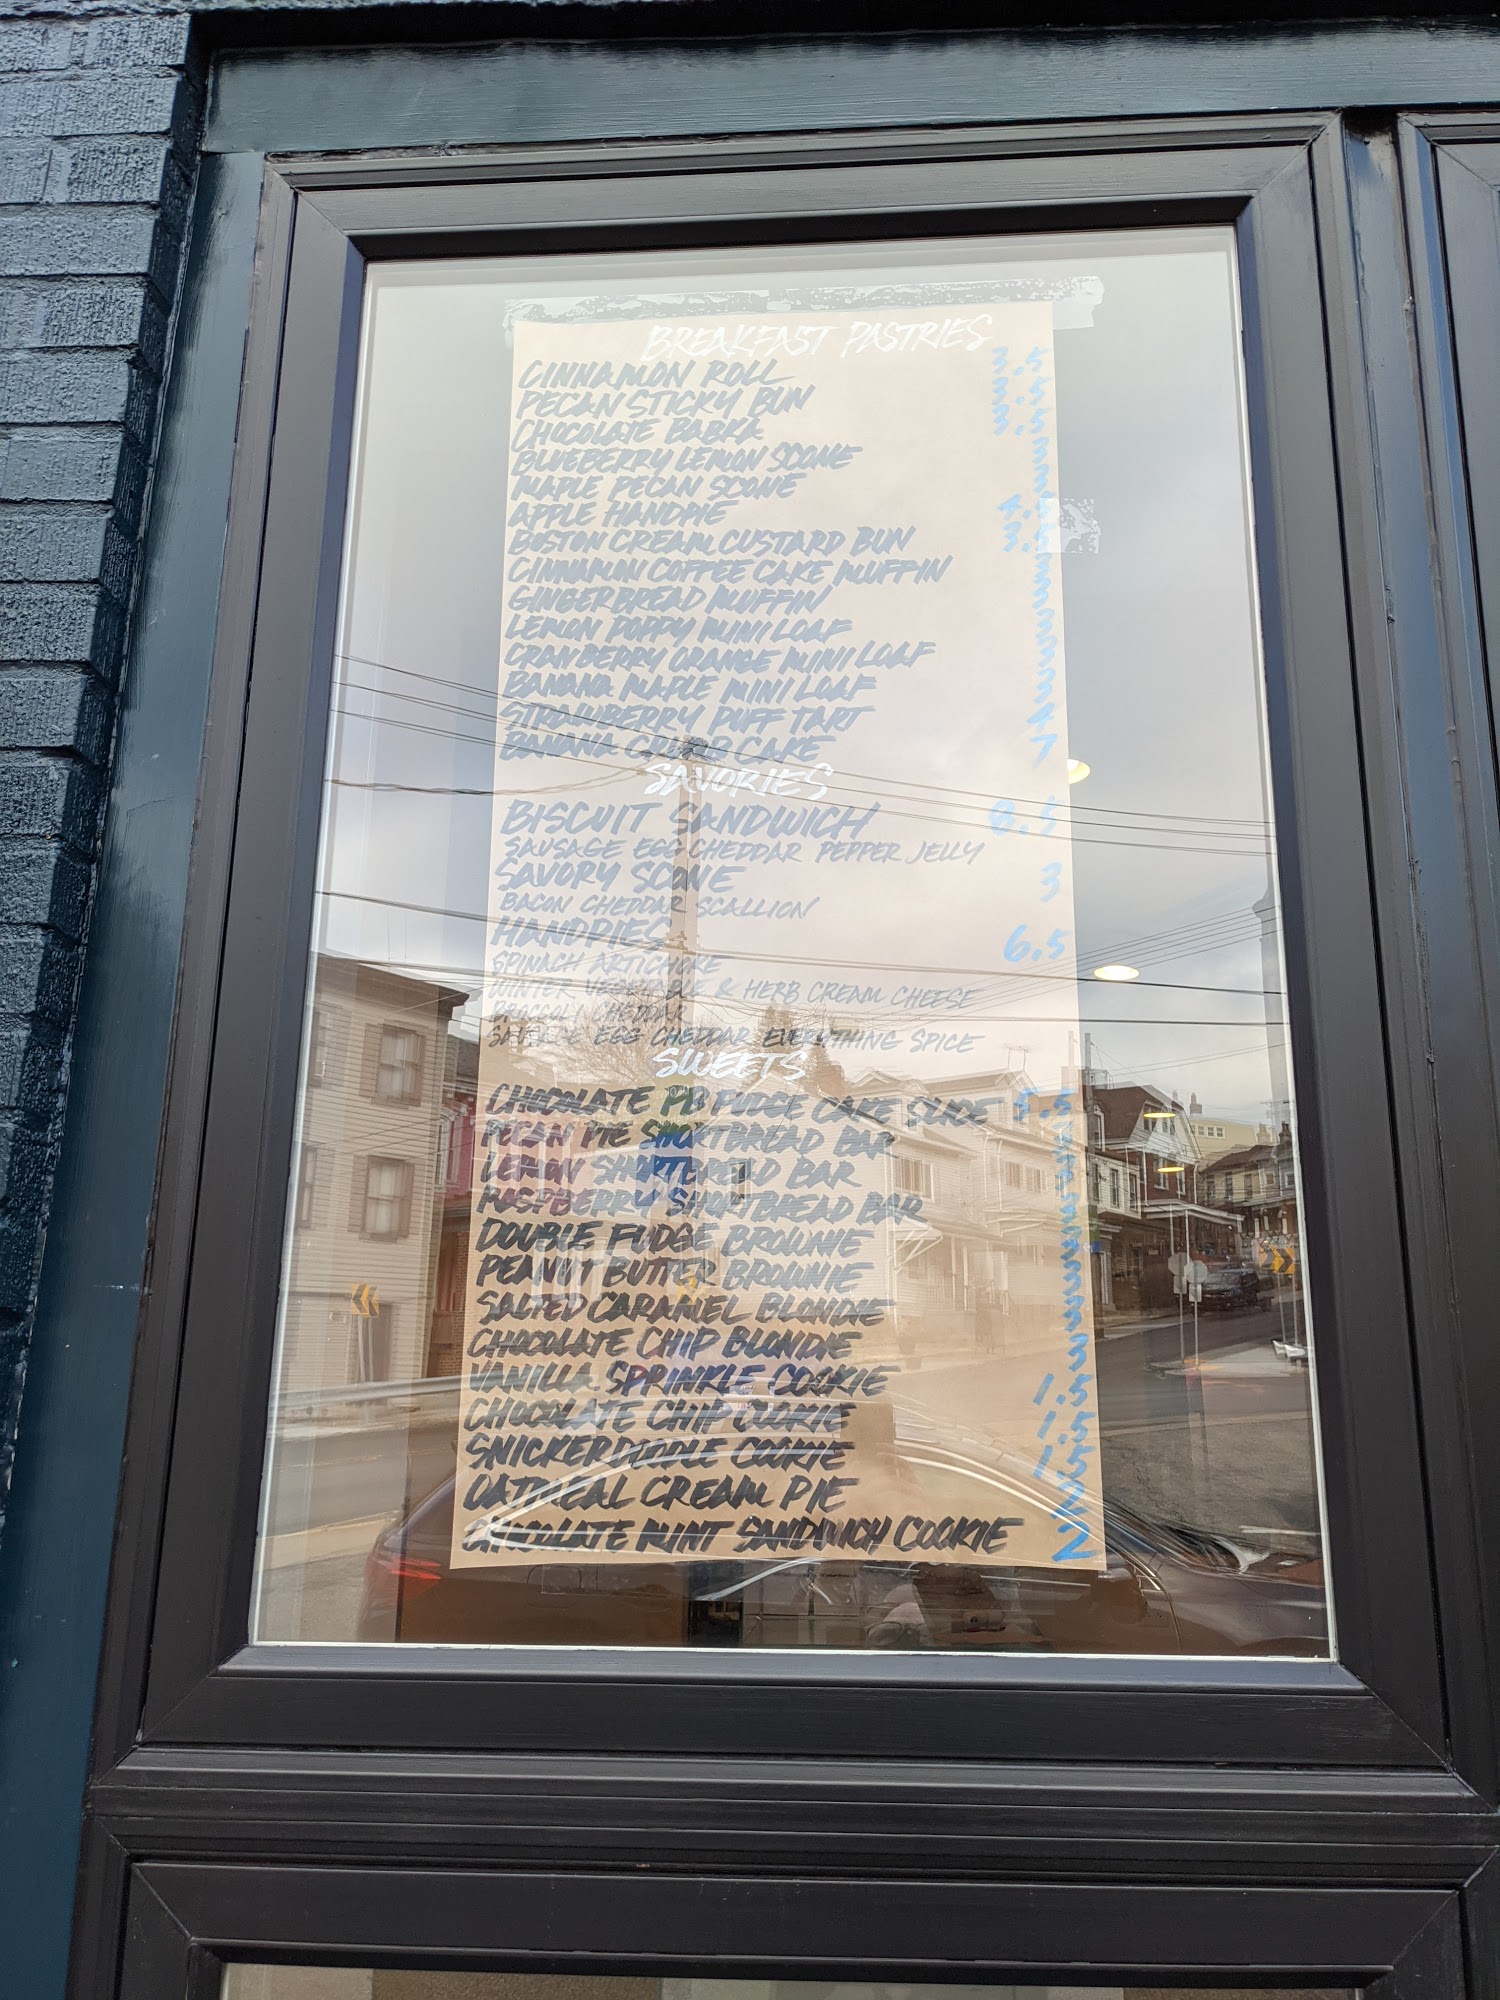 BREAKFAST PASTRIES
CINNAMON ROLL 3.5
PECAN STICKY BUN 3.5
CHOCOLATE BABKA 3.5
BLUEBERRY LEMON SCONE 3
MAPLE PECAN SCONE 3
APPLE HANDPIE 4.5
BOSTON CREAM CUSTARD BUN 3.5
CINNAMON COFFEE CAKE MUFFIN 3
GINGERBREAD MUFFIN 3
LEMON POPPY MINI LOAF 3
CRANBERRY ORANGE MINI LOAF 3
BANANA MAPLE MINI LOAF 3
STRAWBERRY PUFF TART 4
BANANA CRUMB CAKE 7
SAVORIES
BISCUIT SANDWICH 8.5
SAUSAGE EGG CHEDDAR PEPPER JELLY
SAVORY SCONE 3
BACON CHEDDAR SCALLION
HANDPIES 6.5
SPINACH ARTICHOKE
WINTER VEGETABLE & HERB CREAM CHEESE
BROCCOLI CHEDDAR
SAUSAGE EGG CHEDDAR EVERYTHING SPICE
SWEETS
CHOCOLATE PB FUDGE CAKE SLICE
PECAN PIE SHORTBREAD BAR
LEMON SHORTBREAD BAR
RASPBERRY SHORTBREAD BAR
DOUBLE FUDGE BROWNIE 3
PEANUT BUTTER BROWNIE 3
SALTED CARAMEL BLONDIE 3
CHOCOLATE CHIP BLONDIE 3
VANILLA SPRINKLE COOKIE 1.5
CHOCOLATE CHIP COOKIE 1.5
SNICKERDOODLE COOKIE 1.5
OATMEAL CREAM PIE 2
CHOCOLATE MINT SANDWICH COOKIE 2